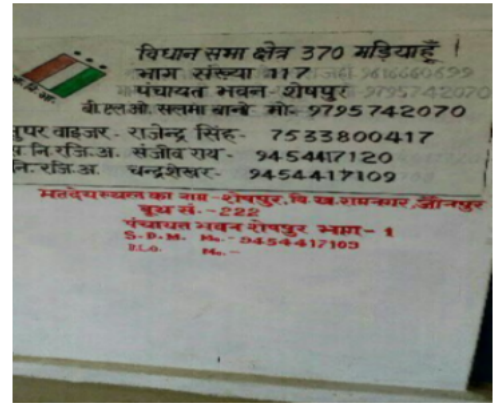 विधान सभा क्षेत्र 370 मड़ियाहूँ
भाग संख्या 117
पंचायत भवन शेषपुर
बी.एल.ओ. सलमा बानो मो. 9795742070
सुपर वाइजर - राजेन्द्र सिंह - 7533800417
स.नि.रजि.अ. संजीव राय - 9454417120
नि.रजि.अ. चन्द्रशेखर - 9454417109
मतदेयस्थल का नाम - शेषपुर, वि.ख. रामनगर, जौनपुर
बूथ सं. - 222
पंचायत भवन शेषपुर भाग - 1
S.D.M. Mo. - 9454417109
B.L.O. Mo. -